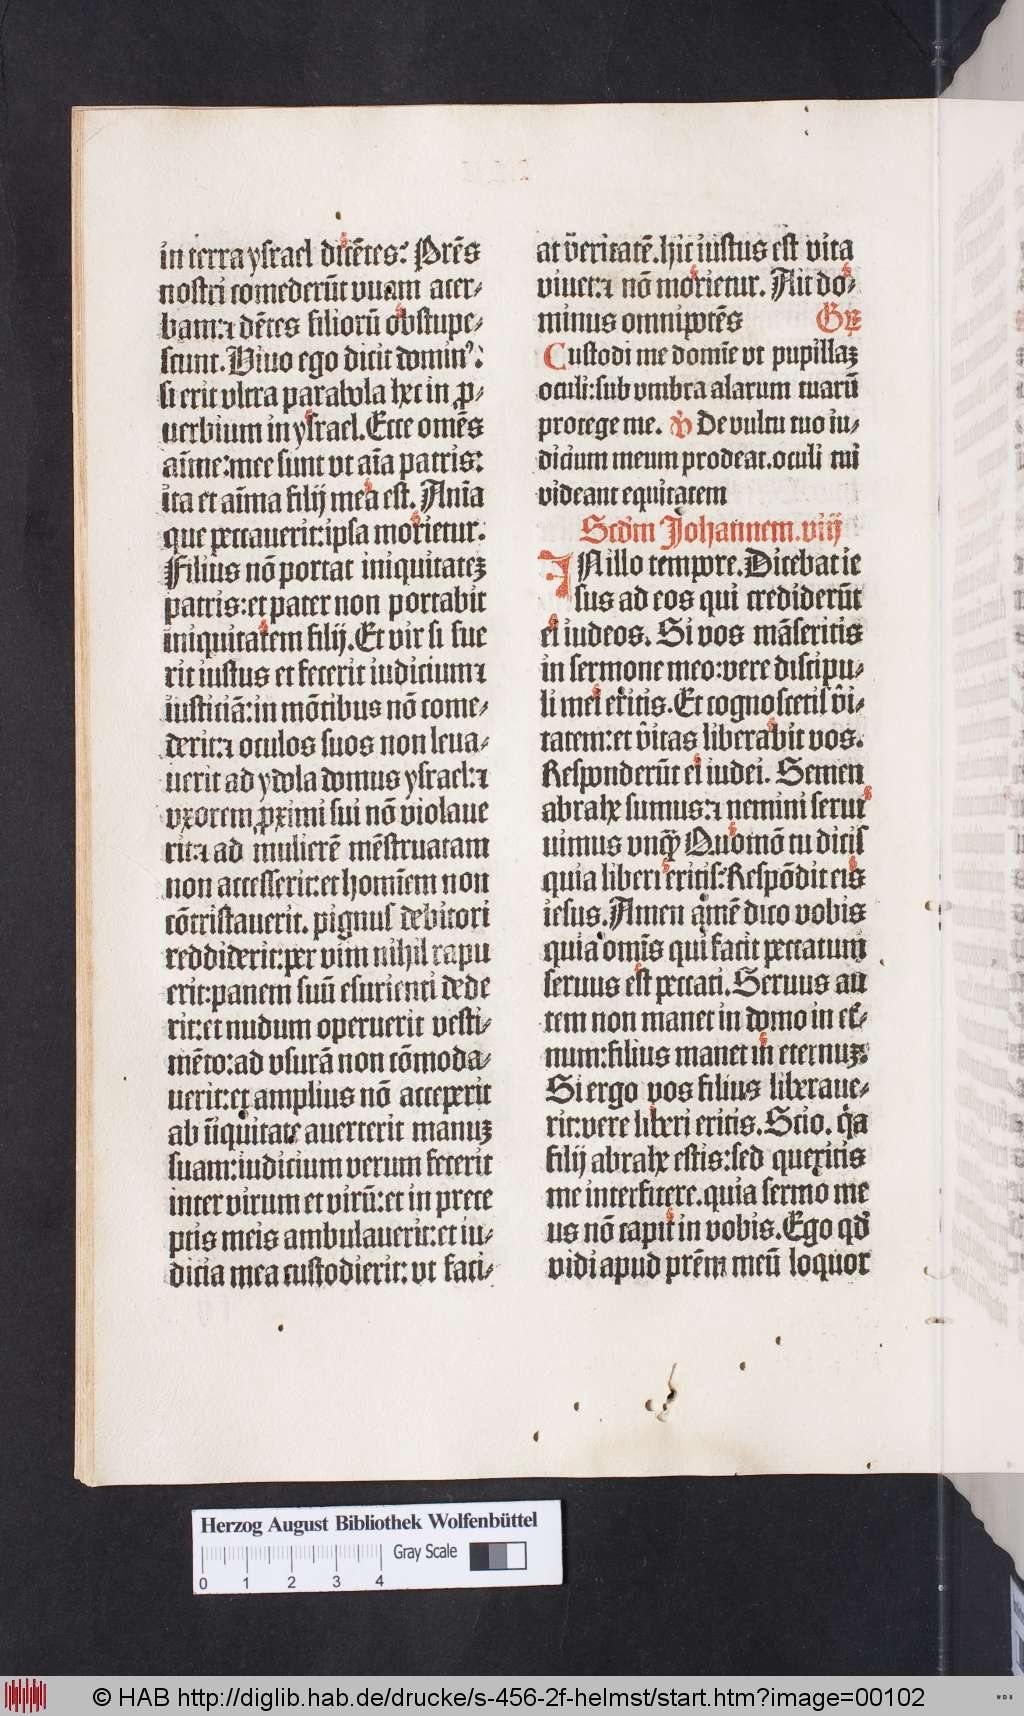 in terra ysrael dicētes: Prēs
nostri comederūt vuam acer⸗
bam:⁊ dētes filiorū obstupe⸗
scunt. Viuo ego dicit dominꝰ:
si erit vltra parabola hec in ꝓ⸗
uerbium in ysrael. Ecce omēs
aīme: mee sunt vt aīa patris:
ita et aīma filij mea est. Anīa
que peccauerit: ipsa morietur.
Filius nō portat iniquitateꝫ
patris: et pater non portabit
iniquitatem filij. Et vir si fue
rit iustus et fecerit iudicium ⁊
iusticiā: in mōtibus nō come⸗
derit:⁊ oculos suos non leua⸗
uerit ad ydola domus ysrael:⁊
vxorem ꝓximi sui nō violaue
rit:⁊ ad mulierē mēstruatam
non accesserit: et homīem non
cōtristauerit. pignus debitori
reddiderit: per vim nihil rapu
erit: panem suū esurienti dede
rit: et nudum operuerit vesti⸗
mēto: ad vsurā non cōmoda⸗
uerit: et amplius nō acceperit
ab īiquitate auerterit manuꝫ
suam: iudicium verum fecerit
inter virum et virū: et in prece
ptis meis ambulauerit: et iu⸗
dicia mea custodierit: vt faci⸗
at v̄eritatē. hic iustus est vita
viuet:⁊ nō morietur. Ait do⸗
minus omnipotēs Gr̄
Custodi me domīe vt pupillaꝫ
oculi: sub vmbra alarum tuarū
protege me. ℣ De vultu tuo iu⸗
dicium meum prodeat. oculi tui
videant equitatem
Scd̄m Johannem. viij
IN illo tempore. Dicebat ie
sus ad eos qui crediderūt
ei iudeos. Si vos māseritis
in sermone meo: vere discipu⸗
li mei eritis. Et cognoscetis v̄i⸗
tatem: et v̄itas liberabit vos.
Responderūt ei iudei. Semen
abrahe sumus:⁊ nemini serui
uimus vnqꝫ̄ Quomō tu dicis
quia liberi eritis: Respōdit eis
iesus. Amen amē dico vobis
quia omīs qui facit peccatum
seruus est peccati. Seruus au
tem non manet in domo in et̄⸗
num: filius manet in eternuꝫ.
Si ergo vos filius liberaue⸗
rit: vere liberi eritis. Scio. qꝛa
filij abrahe estis: sed queritis
me interficere. quia sermo me
us nō capit in vobis. Ego qd̄
vidi apud prēm meū loquor
Herzog August Bibliothek Wolfenbüttel
Gray Scale
0 1 2 3 4
© HAB http://diglib.hab.de/drucke/s-456-2f-helmst/start.htm?image=00102